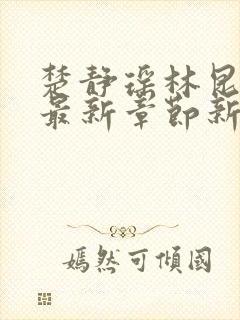 楚静瑶林昆
最新章节新
嫣然可傾國